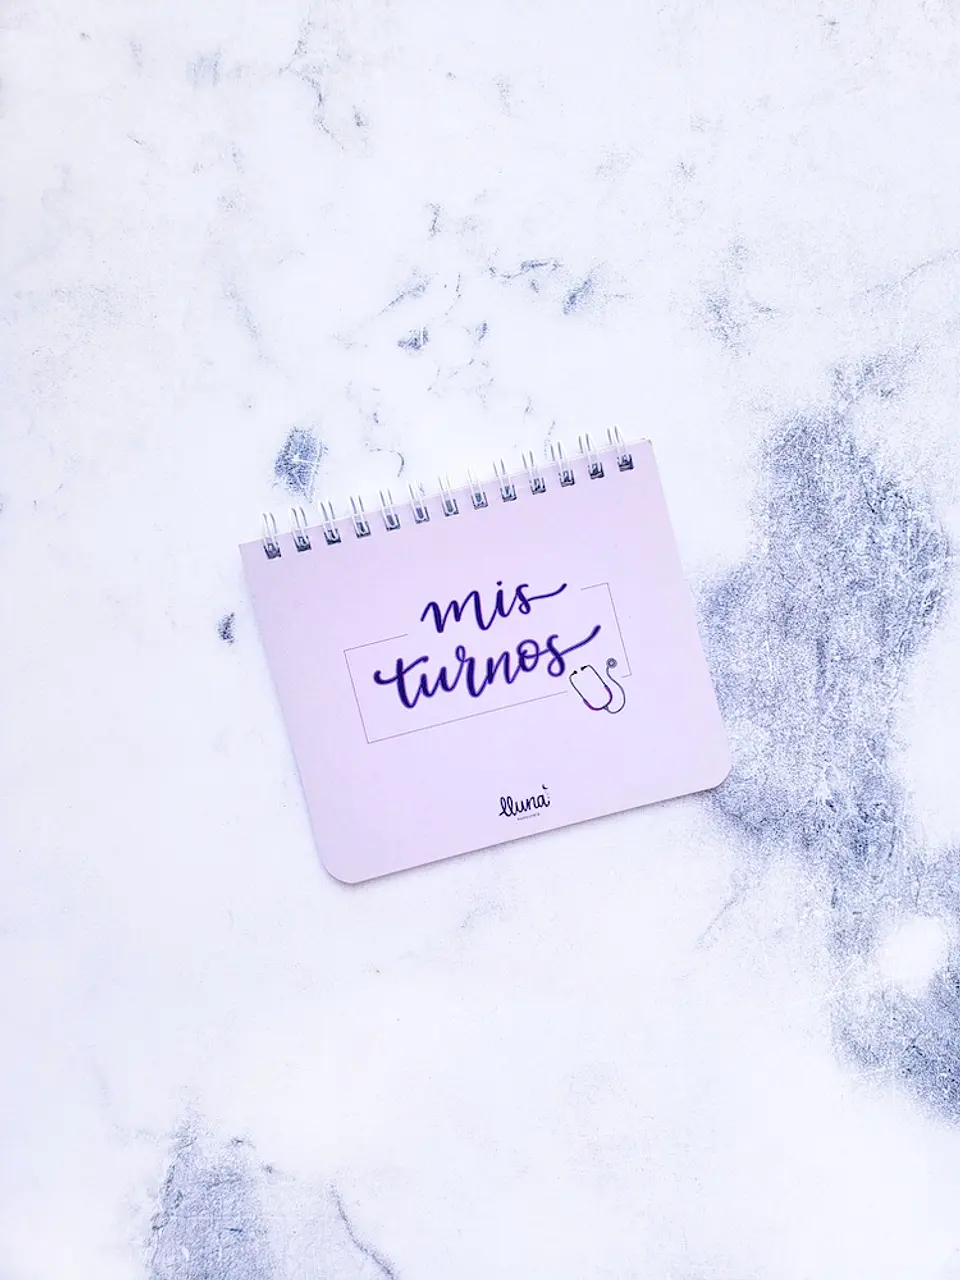 mis
turnos
lluna